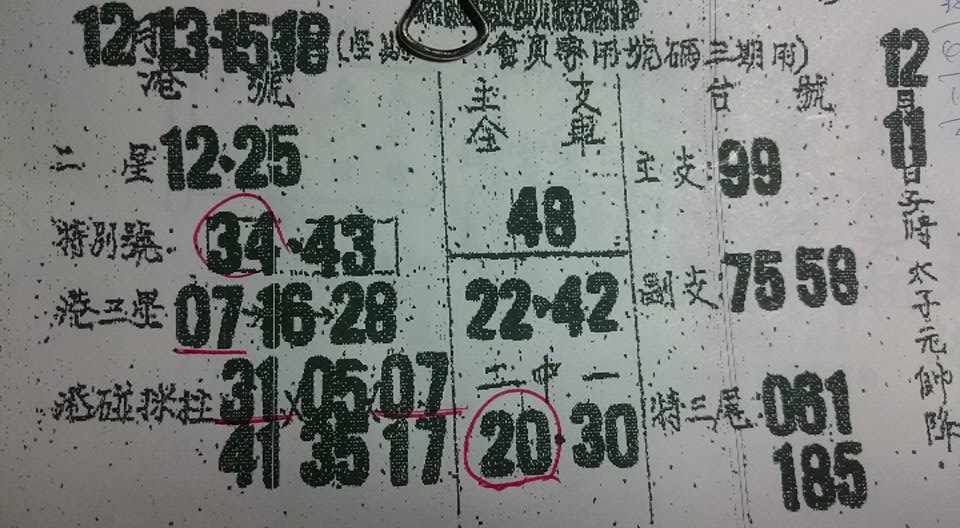 12月13·15·18
會員專用號碼三期用)
港 號
二 星 12·25
特別號 34·43
港三星 07·16·28
港碰球柱 31 X 05 X 07
41 35 17
主 支
全 車
48
22·42
二中一
20·30
台 號
主支 99
副支 75 58
特三尾 061
185
12月11日子時太子元帥降